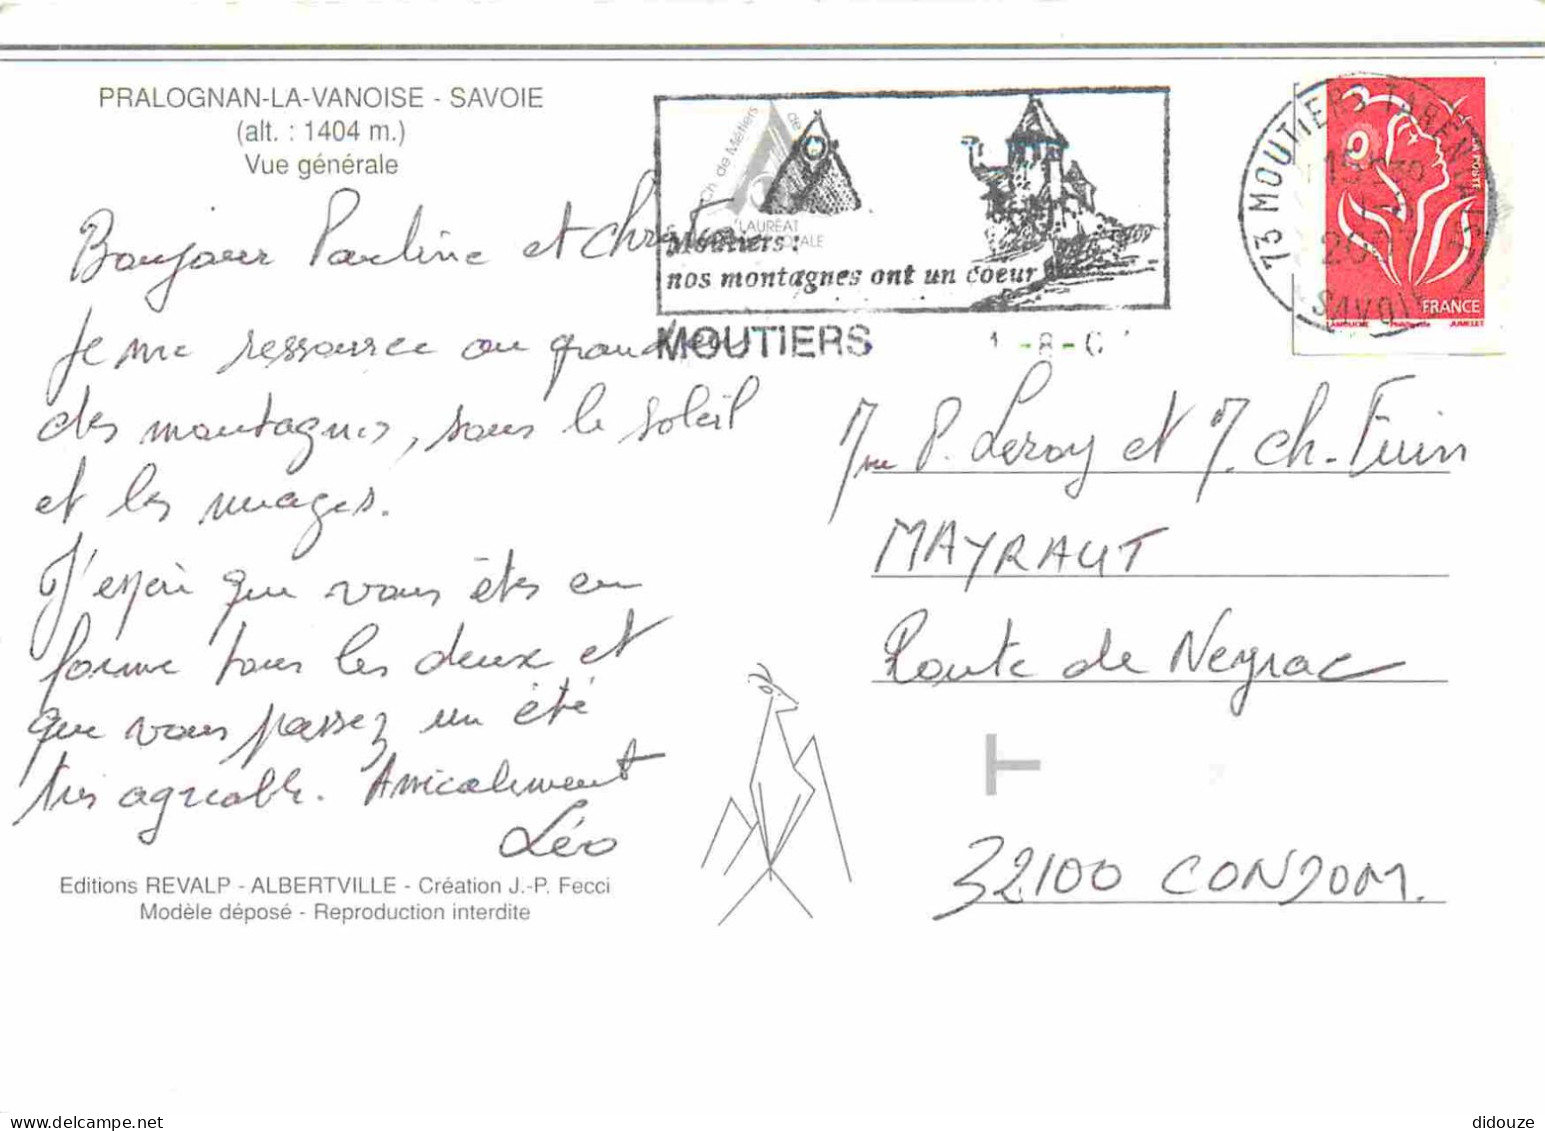 PRALOGNAN-LA-VANOISE - SAVOIE
(alt. : 1404 m.)
Vue générale
Bonjour Pauline et
Je me ressource au
des montagnes, sous le soleil
et les nuages.
J'espère que vous êtes en
forme tous les deux et
que vous passez un été
très agréable. Amicalement
Léo
Editions REVALP - ALBERTVILLE - Création J.-P. Fecci
Modèle déposé - Reproduction interdite
Ch. de Métiers
LAURÉAT
Moutiers :
nos montagnes ont un coeur
MOUTIERS
73 MOUTIERS TARENTAISE
SAVOIE
LA POSTE
FRANCE
LAMOUCHE
Mme P. Leroy et M. Ch. Fuin
MAYRAUT
Route de Neyrac
T
32100 CONDOM.
didouze